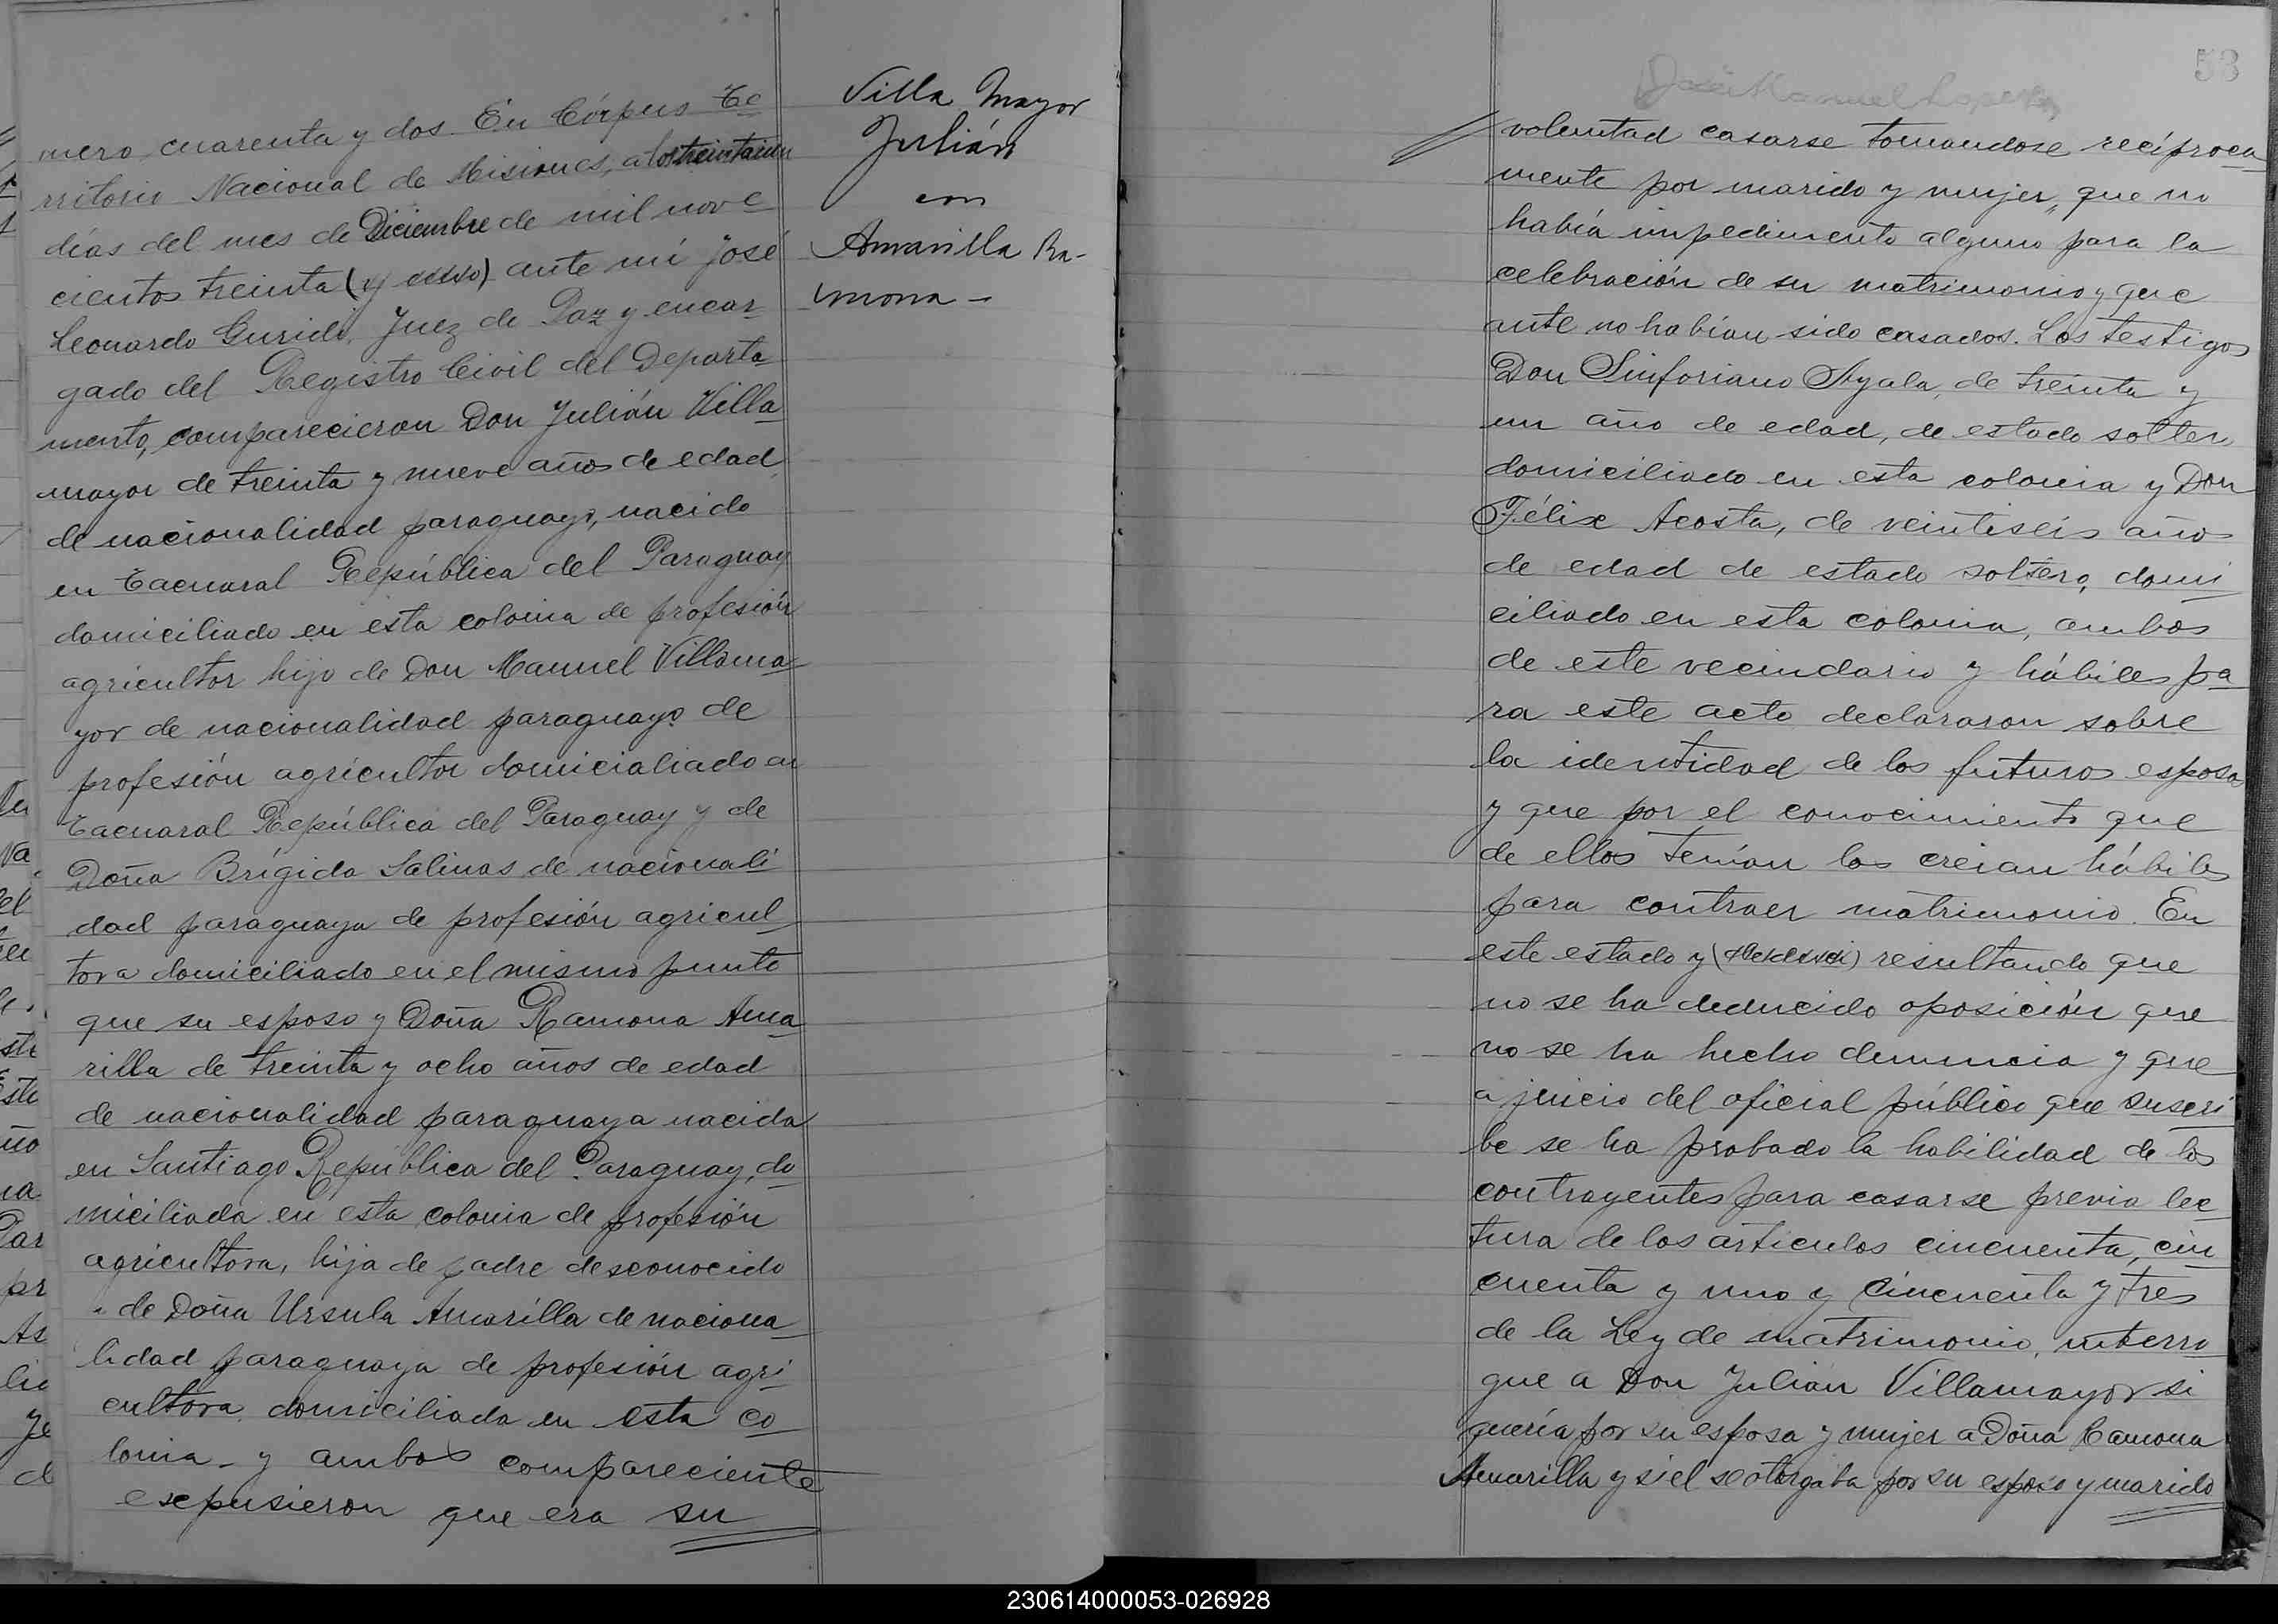 mero, cuarenta y dos. En Córpus Te
rritorio Nacional de Misiones, a los treintaiun
días del mes de Diciembre de mil nove
cientos treinta (y uno) ante mí José
Leonardo Guridi, Juez de Paz y encar
gado del Registro Civil del Departa
mento, comparecieron Don Julián Villa
mayor de treinta y nueve años de edad
de nacionalidad paraguayo, nacido
en Tacuaral República del Paraguay
domiciliado en esta colonia de profesión
agricultor hijo de Don Manuel Villama
yor de nacionalidad paraguayo de
profesión agricultor domicialiado en
Tacuaral República del Paraguay y de
Doña Brígida Salinas de nacionali
dad paraguaya de profesión agricul
tora domiciliado en el mismo punto
que su esposo y Doña Ramona Ama
rilla de treinta y ocho años de edad
de nacionalidad paraguaya nacida
en Santiago República del Paraguay, do
miciliada en esta colonia de profesión
agricultora, hija de padre desconocido
de Doña Ursula Amarilla de naciona
lidad paraguaya de profesión agri
cultora domiciliada en esta co
lonia - y ambos compareciente
expusieron que era su
Villa Mayor
Julián
con
Amarilla Ra-
mona -
53
José Manuel
voluntad casarse tomandose recíproca
mente por marido y mujer, que no
había impedimento alguno para la
celebración de su matrimonio y que
ante no habían sido casados. Los testigos
Don Sinforiano Ayala, de treinta y
un año de edad, de estado solter
domiciliado en esta colonia y Don
Félix Acosta, de veintiseis años
de edad de estado soltero, domi
ciliado en esta colonia, ambos
de este vecindario y hábiles pa
ra este acto declararon sobre
la identidad de los futuros esposo
y que por el conocimiento que
de ellos tenían los creian hábiles
para contraer matrimonio. En
este estado y resultando que
no se ha deducido oposición que
no se ha hecho denuncia y que
a juicio del oficial público que suscri
be se ha probado la habilidad de los
contrayentes para casarse previa lec
tura de los artículos cincuenta, cin
cuenta y uno y cincuenta y tres
de la Ley de matrimonio, interro
gue a Don Julián Villamayor si
quería por su esposa y mujer a Doña Ramona
Amarilla y si el se otorgaba por su esposo y marido
230614000053-026928